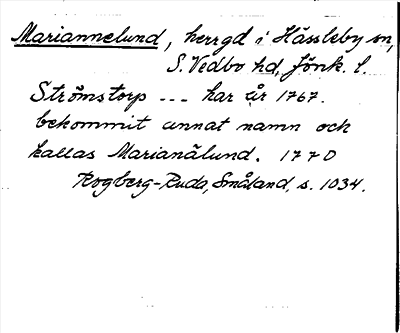 Mariannelund, herrgd i Hässleby sn,
S. Vedbo hd, Jönk. l.
Strömstorp --- har år 1767.
bekommit annat namn och
kallas Marianälund. 1770
Rogberg-Ruda, Småland, s. 1034.